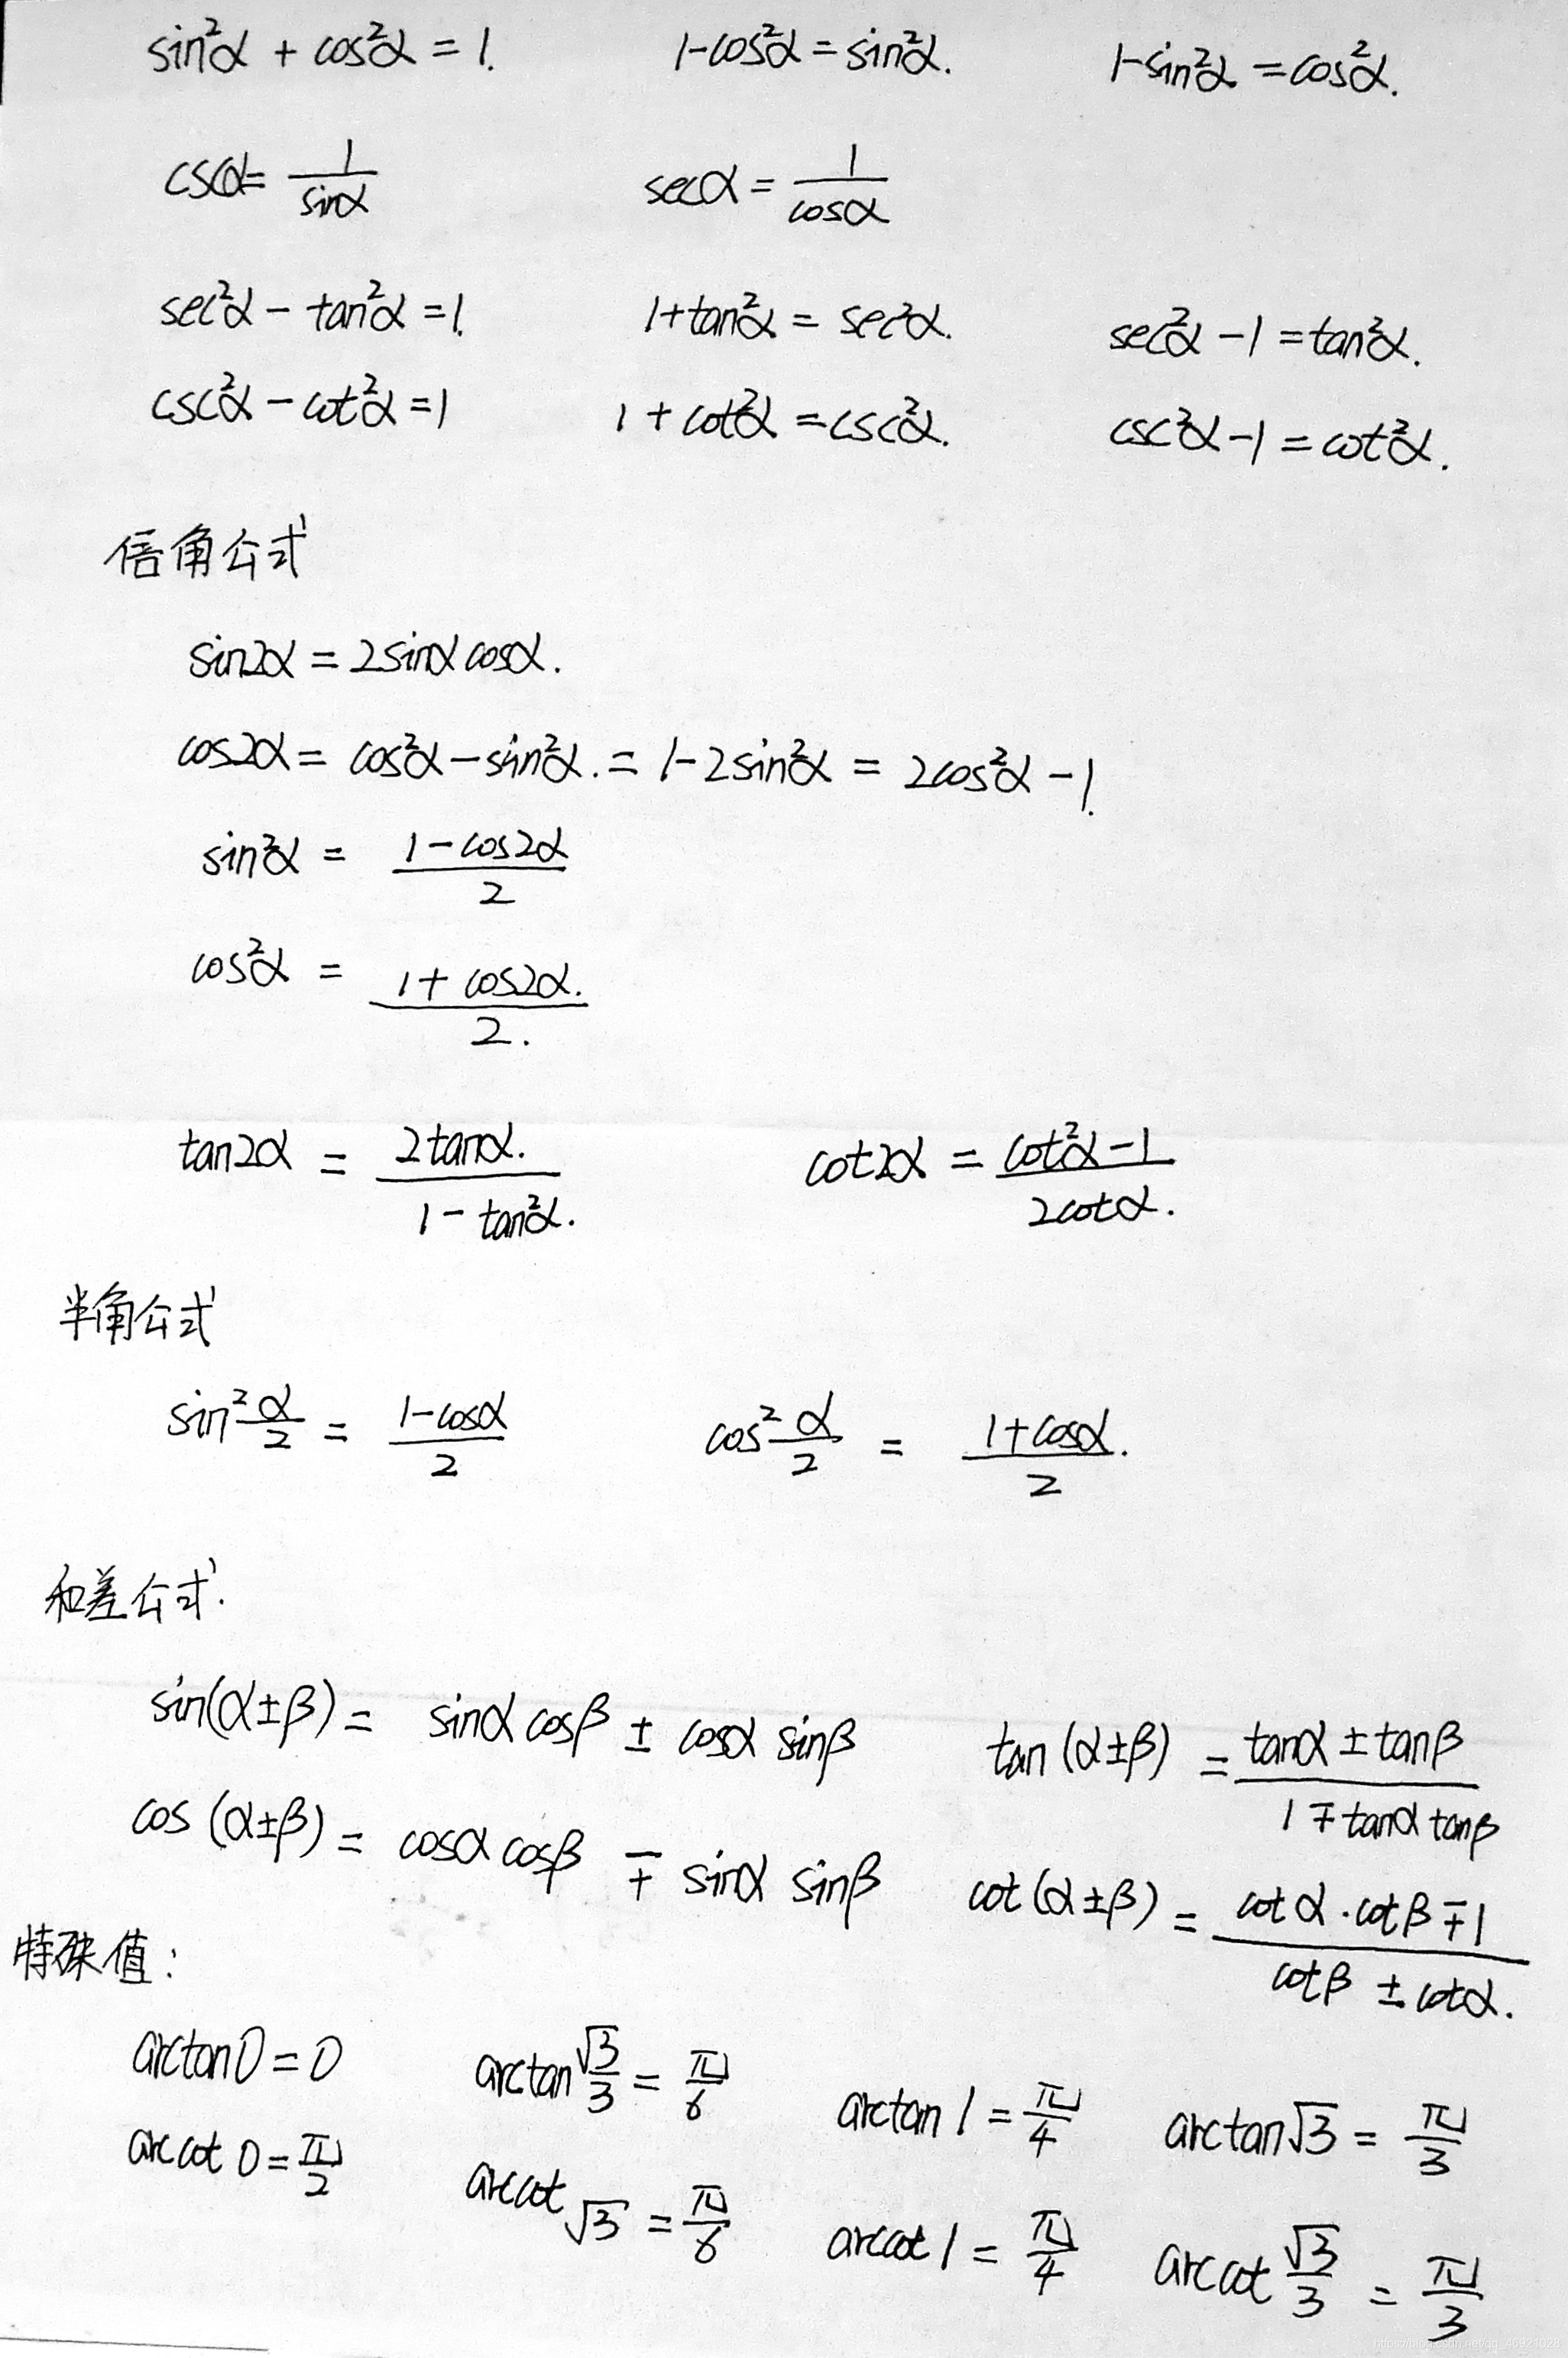 sin²α + cos²α = 1. 1-cos²α = sin²α. 1-sin²α = cos²α.
cscα = 1/sinα secα = 1/cosα
sec²α - tan²α = 1. 1+tan²α = sec²α. sec²α - 1 = tan²α.
csc²α - cot²α = 1 1 + cot²α = csc²α. csc²α - 1 = cot²α.
倍角公式
sin2α = 2sinα cosα.
cos2α = cos²α - sin²α. = 1-2sin²α = 2cos²α - 1.
sin²α = (1-cos2α)/2
cos²α = (1+cos2α.)/2.
tan2α = 2tanα./(1-tan²α.) cot2α = (cot²α-1)/(2cotα.)
半角公式
sin² α/2 = (1-cosα)/2 cos² α/2 = (1+cosα.)/2
和差公式.
sin(α±β) = sinα cosβ ± cosα sinβ tan(α±β) = (tanα ± tanβ)/(1 ∓ tanα tanβ)
cos(α±β) = cosα cosβ ∓ sinα sinβ cot(α±β) = (cotα·cotβ ∓ 1)/(cotβ ± cotα.)
特殊值:
arctan0 = 0 arctan √3/3 = π/6 arctan1 = π/4 arctan√3 = π/3
arccot0 = π/2 arccot√3 = π/6 arccot1 = π/4 arccot √3/3 = π/3